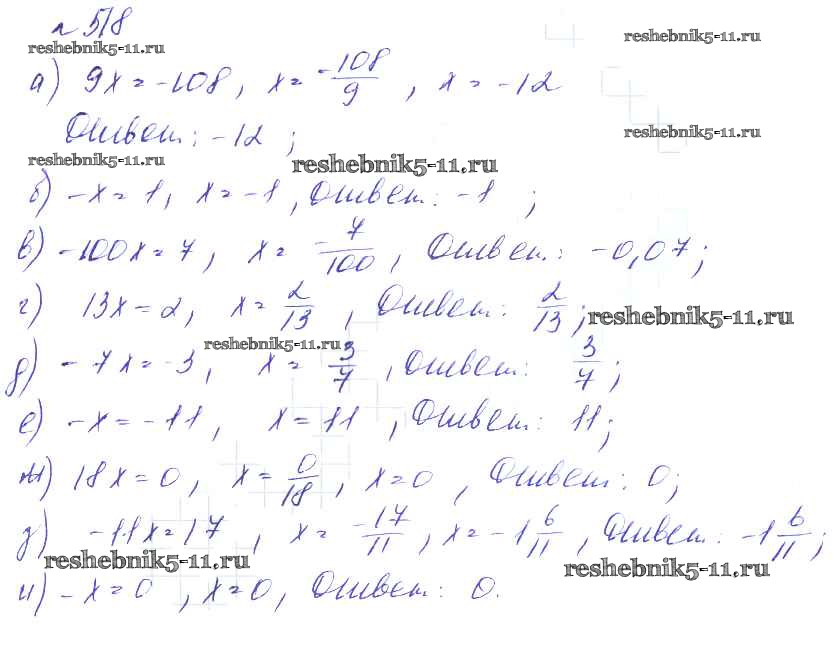 № 518
reshebnik5-11.ru reshebnik5-11.ru
а) 9x = -108, x = -108/9, x = -12
reshebnik5-11.ru
Ответ: -12;
reshebnik5-11.ru reshebnik5-11.ru
б) -x = 1, x = -1, Ответ: -1;
в) -100x = 7, x = -7/100, Ответ: -0,07;
г) 13x = 2, x = 2/13, Ответ: 2/13; reshebnik5-11.ru
reshebnik5-11.ru
д) -7x = -3, x = 3/7, Ответ: 3/7;
е) -x = -11, x = 11, Ответ: 11;
ж) 18x = 0, x = 0/18, x = 0, Ответ: 0;
з) -11x = 17, x = -17/11, x = -1 6/11, Ответ: -1 6/11;
reshebnik5-11.ru reshebnik5-11.ru
и) -x = 0, x = 0, Ответ: 0.